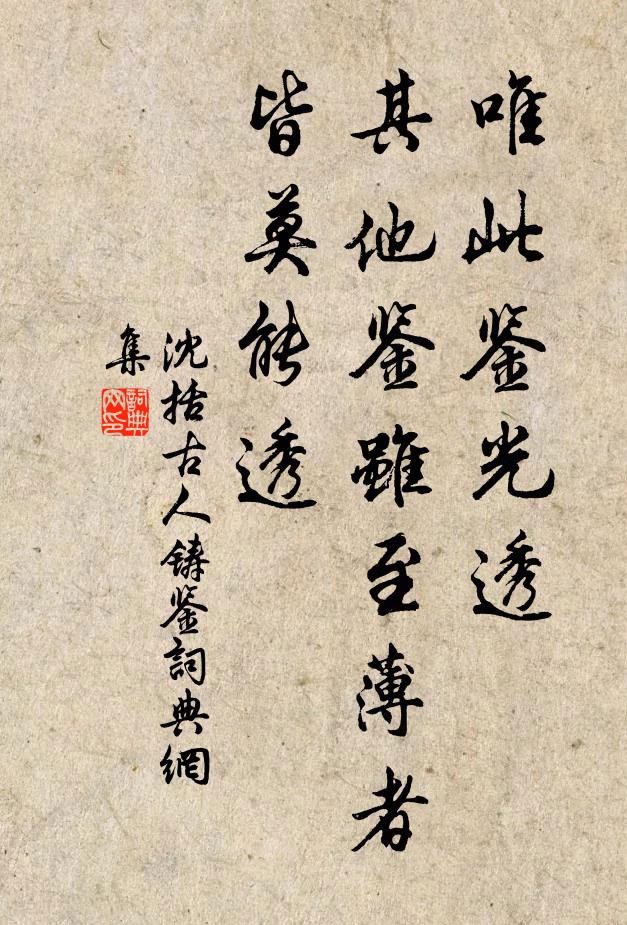 唯此鉴光透
其他鉴雖至薄者
皆莫能透
沈括古人鑄鉴詞典網
集
詞典
网印